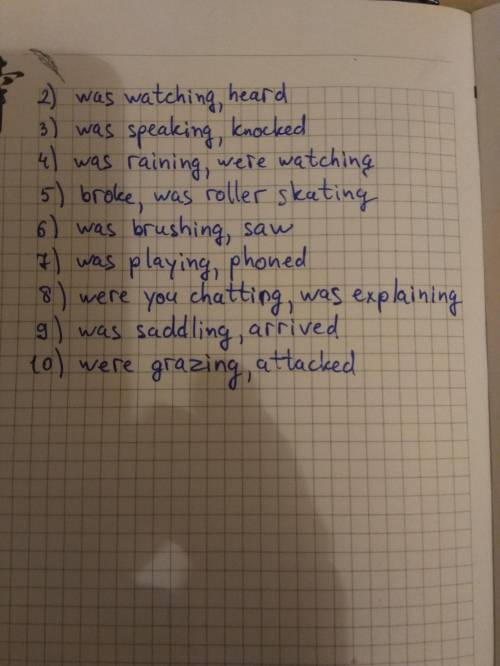 2) was watching, heard
3) was speaking, knocked
4) was raining, were watching
5) broke, was roller skating
6) was brushing, saw
7) was playing, phoned
8) were you chatting, was explaining
9) was saddling, arrived
10) were grazing, attacked